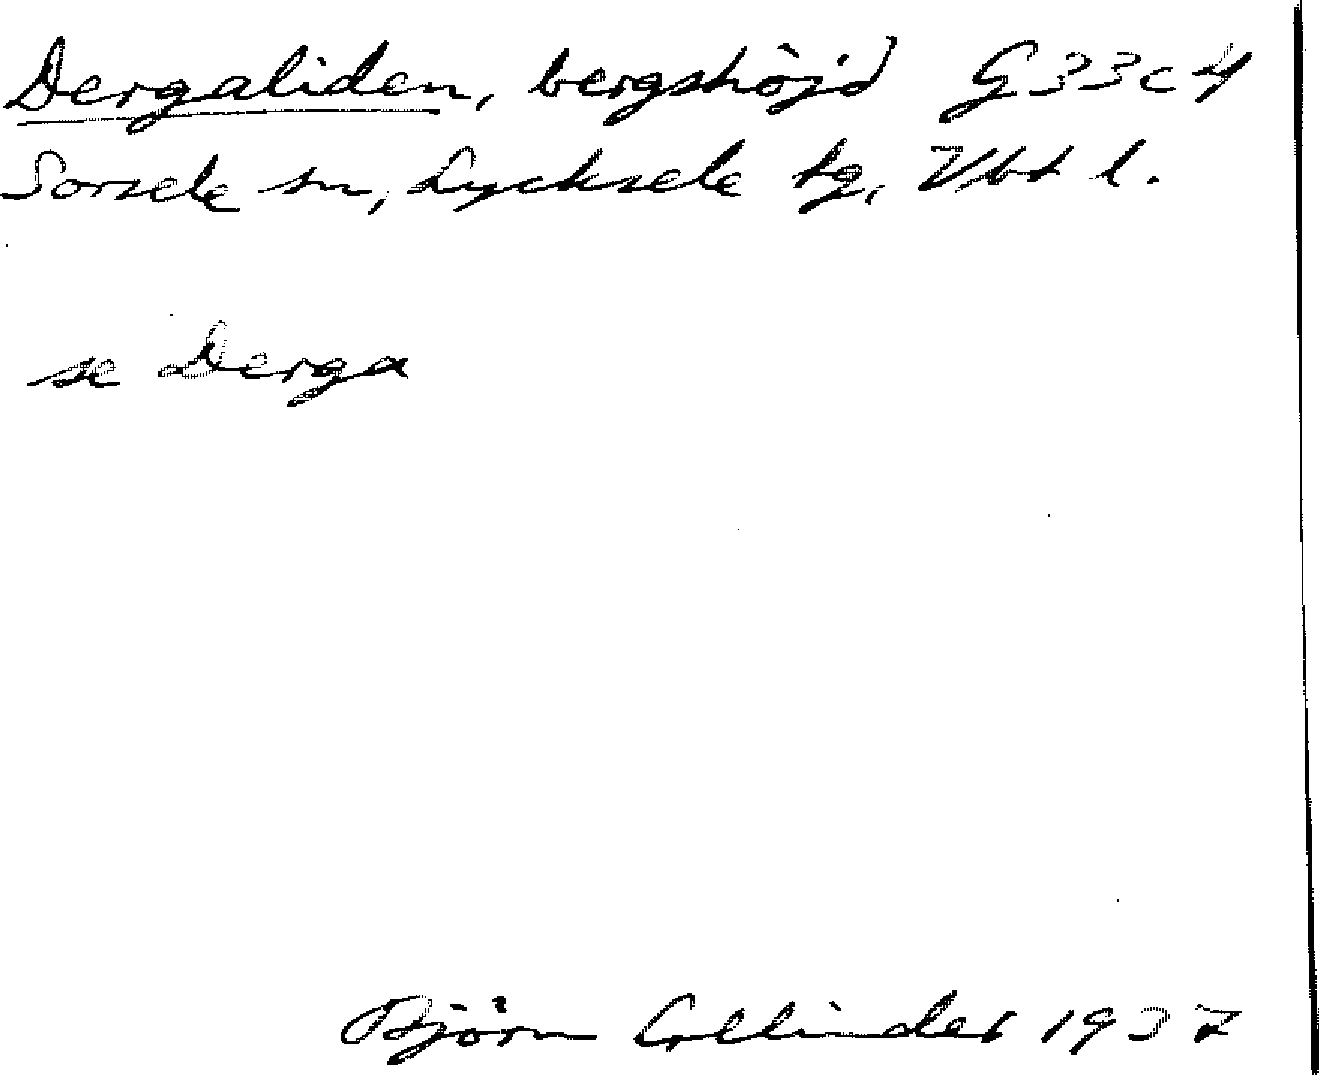 Dergaliden, bergshöjd G33c4
Sorsele sn, Lycksele tg, Vbt l.
se Derga
Björn Collinder 1937